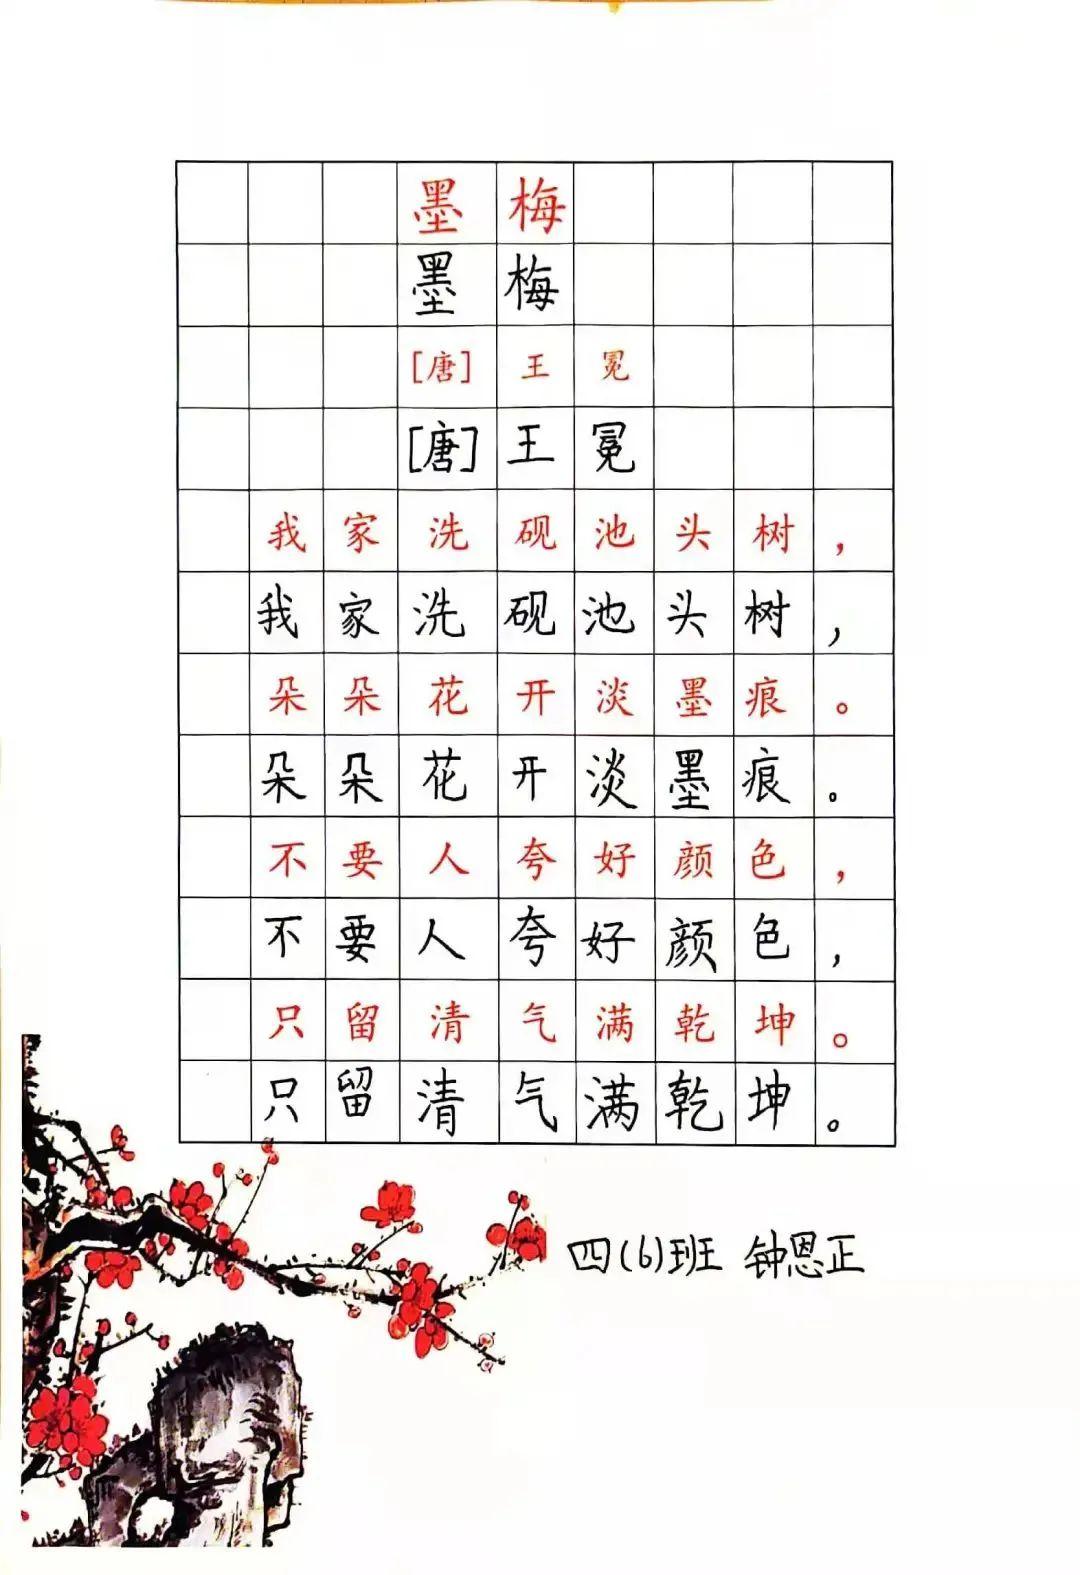 墨梅
墨梅
[唐]王冕
[唐]王冕
我家洗砚池头树，
我家洗砚池头树，
朵朵花开淡墨痕。
朵朵花开淡墨痕。
不要人夸好颜色，
不要人夸好颜色，
只留清气满乾坤。
只留清气满乾坤。
四(6)班 钟恩正